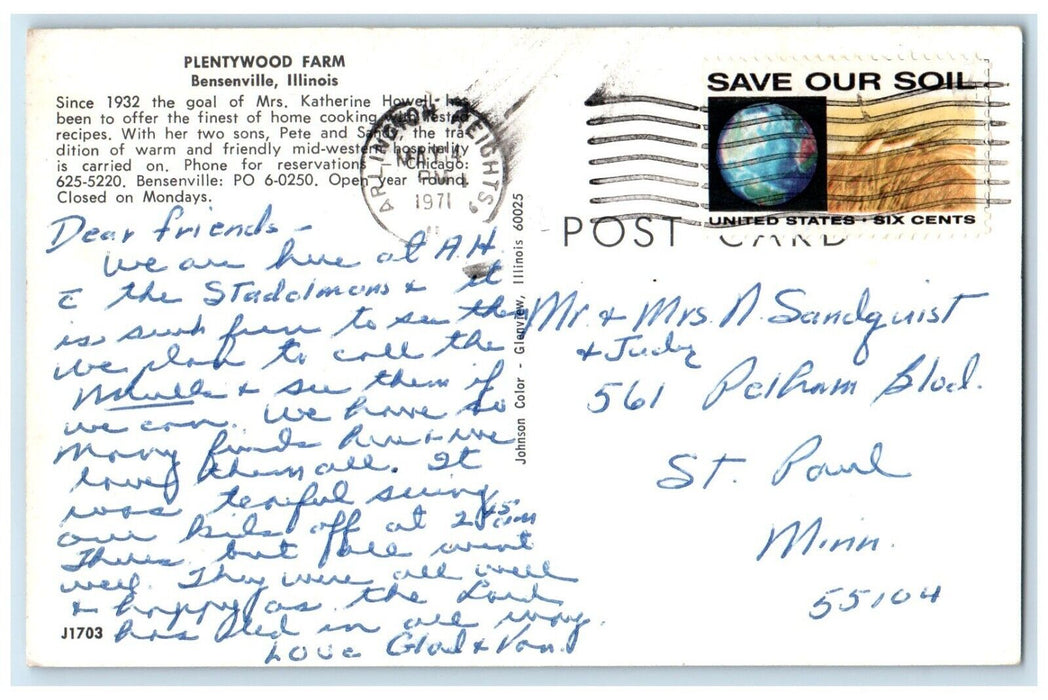 PLENTYWOOD FARM
Bensenville, Illinois
Since 1932 the goal of Mrs. Katherine Howell has
been to offer the finest of home cooking with tested
recipes. With her two sons, Pete and Sandy, the tra
dition of warm and friendly mid-western hospitality
is carried on. Phone for reservations Chicago:
625-5220. Bensenville: PO 6-0250. Open year round.
Closed on Mondays.
ARLINGTON HEIGHTS,
PM
1971
SAVE OUR SOIL
UNITED STATES · SIX CENTS
POST CARD
Dear friends -
We are here at A.H.
c̄ the Stadelmans & it
is such fun to see them
We plan to call the
& see them if
we can. We have so
many friends here & we
love them all. It
was tearful seeing
our kids off at 2:45 am
Thurs. but all went
well. They were all well
& happy as the Lord
has led in all way.
Love Glad & Van.
J1703
Johnson Color - Glenview, Illinois 60025
Mr. & Mrs. N. Sandquist
& Judy
561 Pelham Blvd.
St. Paul
Minn.
55104